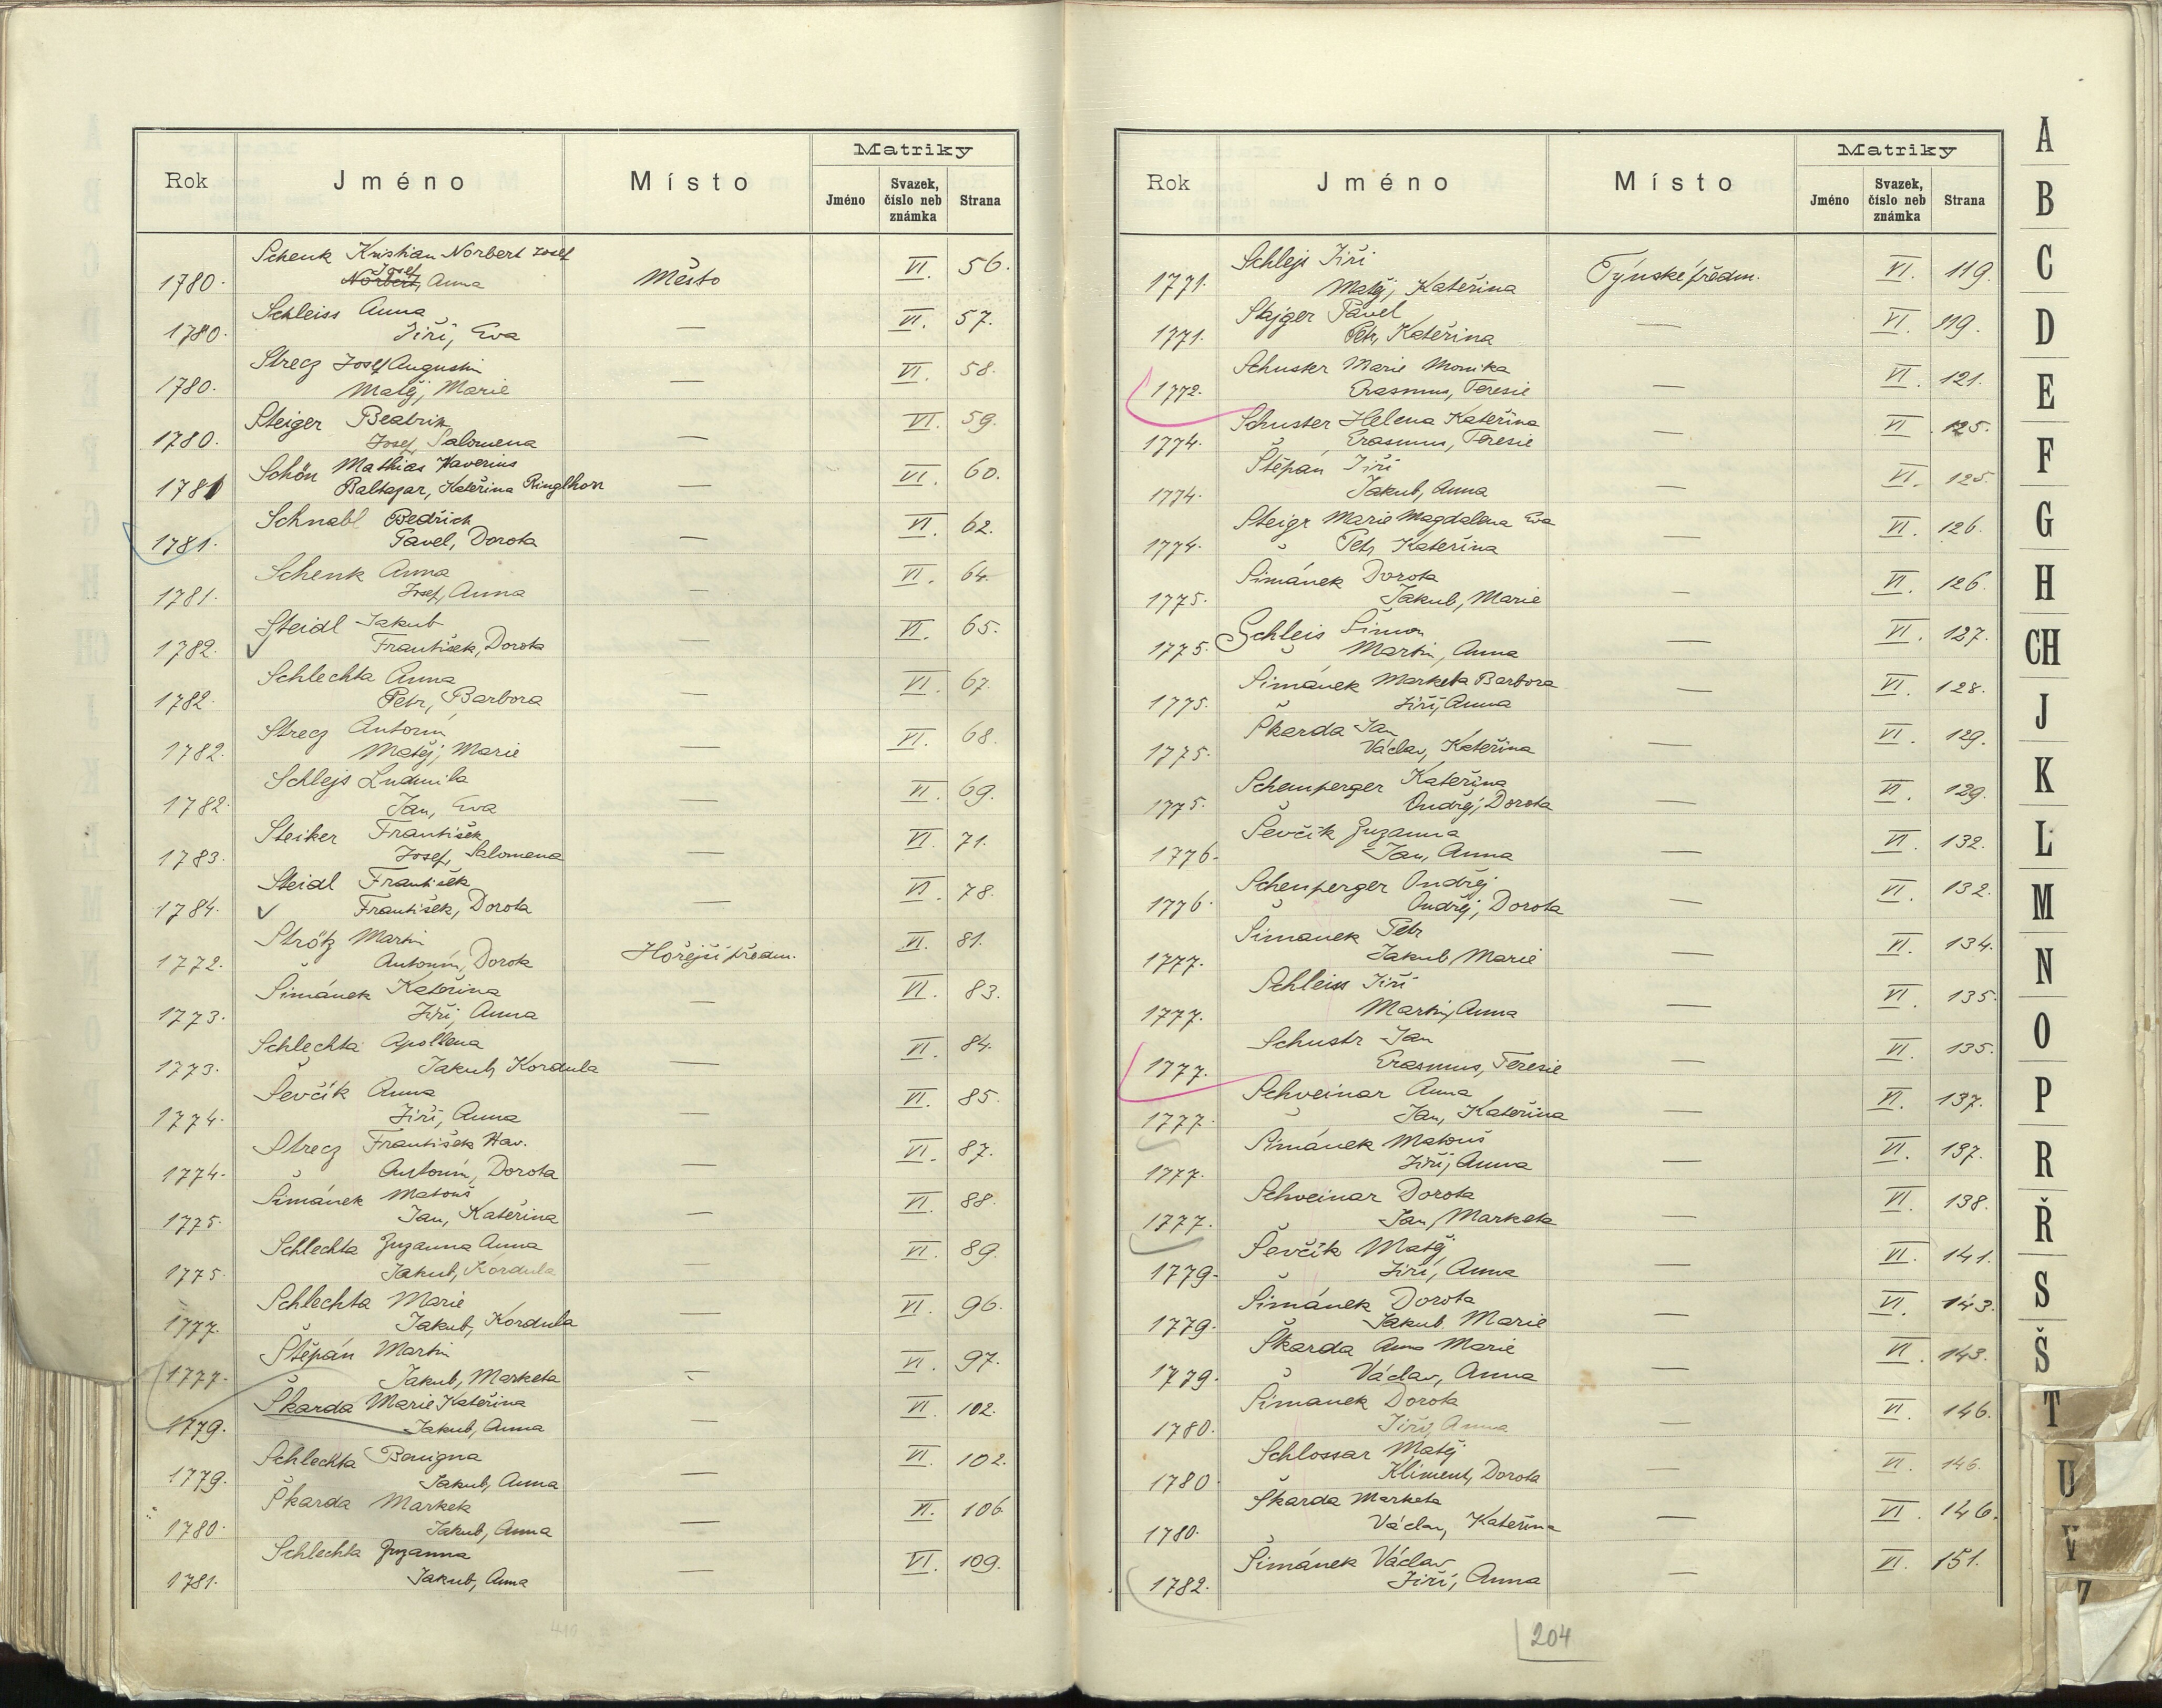 Matriky
Rok Jméno Místo Jméno Svazek, číslo neb známka Strana
Schenk Kristian Norbert Josef
1780. Josef Norbert, Anna Město VI. 56.
Schleiss Anna
1780. Jiří, Eva — VI. 57.
Strecz Josef Augustin
1780. Matěj, Marie — VI. 58.
Steiger Beatrix
1780. Josef, Salomena — VI. 59.
Schön Mathias Xaverius
1781 Baltazar, Kateřina Ringlhon — VI. 60.
Schnabl Bedřich
1781. Pavel, Dorota — VI. 62.
Schenk Anna
1781. Josef, Anna — VI. 64.
Steidl Jakub
1782. František, Dorota — VI. 65.
Schlechta Anna
1782. Petr, Barbora — VI. 67.
Strecz Antonín
1782. Matěj, Marie — VI. 68.
Schlejs Ludmila
1782. Jan, Eva — VI. 69.
Steiker František
1783. Josef, Salomena — VI. 71.
Steidl František
1784. František, Dorota — VI. 78.
Strötz Martin
1772. Antonín, Dorota Hořejší předm. VI. 81.
Šimánek Kateřina
1773. Jiří, Anna — VI. 83.
Schlechta Apollena
1773. Jakub, Kordula — VI. 84.
Ševčík Anna
1774. Jiří, Anna — VI. 85.
Strecz František Xav.
1774. Antonín, Dorota — VI. 87.
Šimánek Matouš
1775. Jan, Kateřina — VI. 88.
Schlechta Zuzanna Anna
1775. Jakub, Kordula — VI. 89.
Schlechta Marie
1777. Jakub, Kordula — VI. 96.
Štěpán Martin
1777. Jakub, Marketa — VI. 97.
Škarda Marie Kateřina
1779. Jakub, Anna — VI. 102.
Schlechta Benigna
1779. Jakub, Anna — VI. 102.
Škarda Marketa
1780. Jakub, Anna — VI. 106.
Schlechta Zuzanna
1781. Jakub, Anna — VI. 109.
Matriky
Rok Jméno Místo Jméno Svazek, číslo neb známka Strana
Schlejs Jiří
1771. Matěj, Kateřina Týnské předm. VI. 119.
Stajger Pavel
1771. Petr, Kateřina — VI. 119.
Schuster Marie Monika
1772. Erasmus, Teresie — VI. 121.
Schuster Helena Kateřina
1774. Erasmus, Teresie — VI. 125.
Štěpán Jiří
1774. Jakub, Anna — VI. 125.
Steigr Marie Magdalena Eva
1774. Petr Kateřina — VI. 126.
Šimánek Dorota
1775. Jakub, Marie — VI. 126.
Schleis Šimon
1775. Martin, Anna — VI. 127.
Šimánek Marketa Barbora
1775. Jiří, Anna — VI. 128.
Škarda Jan
1775. Václav, Kateřina — VI. 129.
Schemperger Kateřina
1775. Ondřej, Dorota — VI. 129.
Ševčík Zuzanna
1776. Jan, Anna — VI. 132.
Schenperger Ondřej
1776. Ondřej, Dorota — VI. 132.
Šimanek Petr
1777. Jakub, Marie — VI. 134.
Schleiss Jiří
1777. Martin, Anna — VI. 135.
Schustr Jan
1777. Erasmus, Teresie — VI. 135.
Schveinar Anna
1777. Jan, Kateřina — VI. 137.
Šimánek Matouš
1777. Jiří, Anna — VI. 137.
Schveinar Dorota
1777. Jan, Marketa — VI. 138.
Ševčík Matěj
1779. Jiří, Anna — VI. 141.
Šimánek Dorota
1779. Jakub Marie — VI. 143.
Škarda Anna Marie
1779. Václav, Anna — VI. 143.
Šimanek Dorota
1780. Jiří, Anna — VI. 146.
Schlossar Matěj
1780. Kliment, Dorota — VI. 146.
Škarda Marketa
1780. Václav, Kateřina — VI. 146.
Šimánek Václav
1782. Jiří, Anna — VI. 151.
204
A
B
C
D
E
F
G
H
CH
J
K
L
M
N
O
P
R
Ř
S
Š
T
U
V
Z